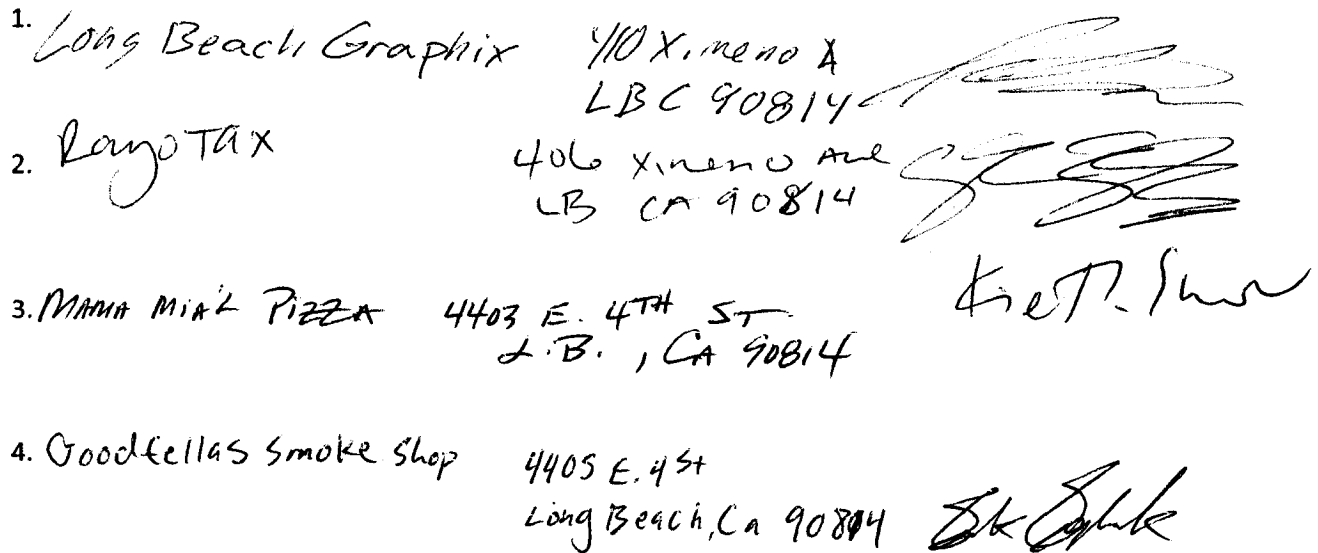 1. Long Beach Graphix 410 Ximeno A
LBC 90814
2. Rayo Tax 406 Ximeno Ave
LB CA 90814
3. MAMA MIA'S PIZZA 4403 E. 4TH ST.
L.B., CA 90814
4. Goodfellas Smoke Shop 4405 E. 4 St
Long Beach, Ca 90814